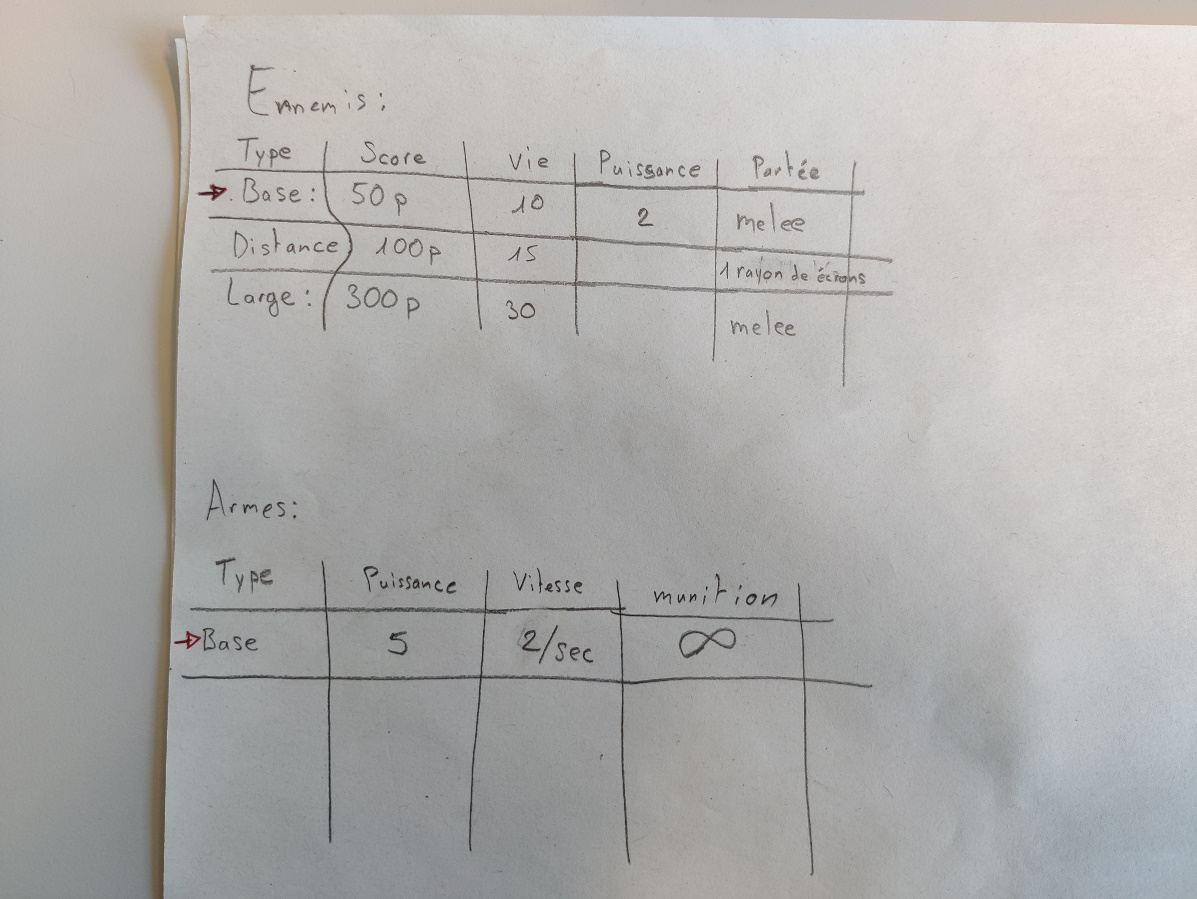 Ennemis:
Type Score Vie Puissance Portée
Base: 50p 10 2 melee
Distance 100p 15 1 rayon de écrans
Large: 300p 30 melee
Armes:
Type Puissance Vitesse munition
Base 5 2/sec ∞